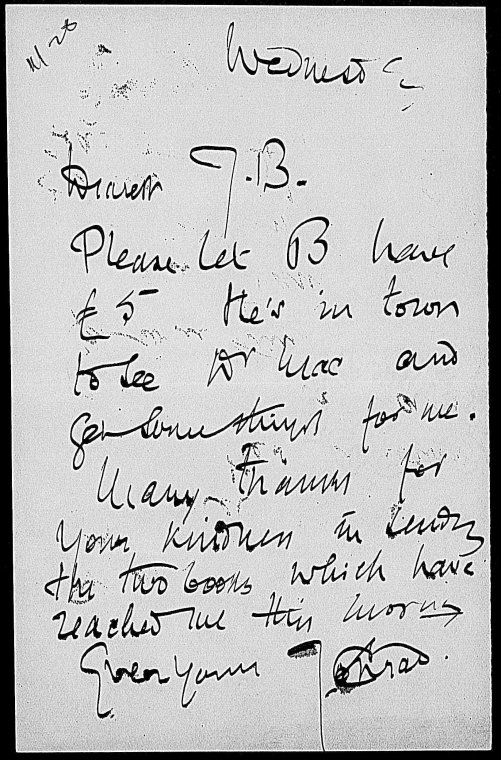 Wednesday
Dearest J.B.
Please let B have
£5 He's in town
to see Dr Mac and
get some things for me.
Many thanks for
your kindness in sending
the two books which have
reached me this morning
Ever yours J Conrad.